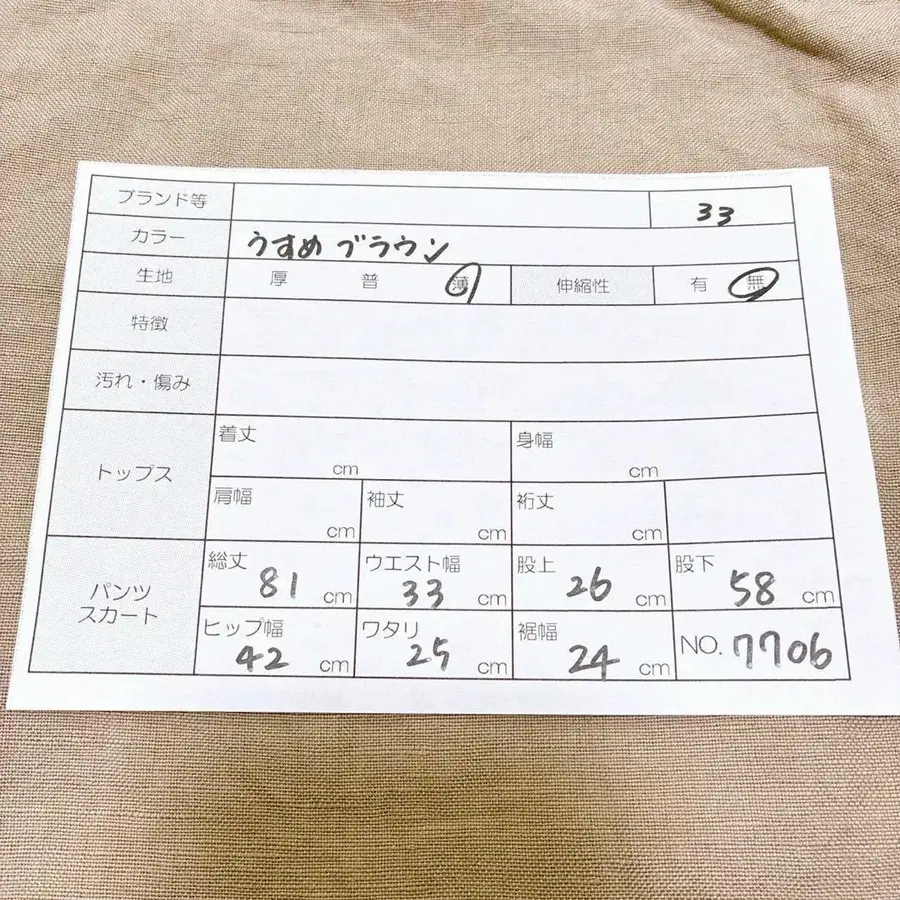 ブランド等 33
カラー うすめブラウン
生地 厚 普 薄 伸縮性 有 無
特徴
汚れ・傷み
トップス
着丈 cm 身幅 cm
肩幅 cm 袖丈 cm 裄丈 cm
パンツ
スカート
総丈 81 cm ウエスト幅 33 cm 股上 26 cm 股下 58 cm
ヒップ幅 42 cm ワタリ 25 cm 裾幅 24 cm NO. 7706